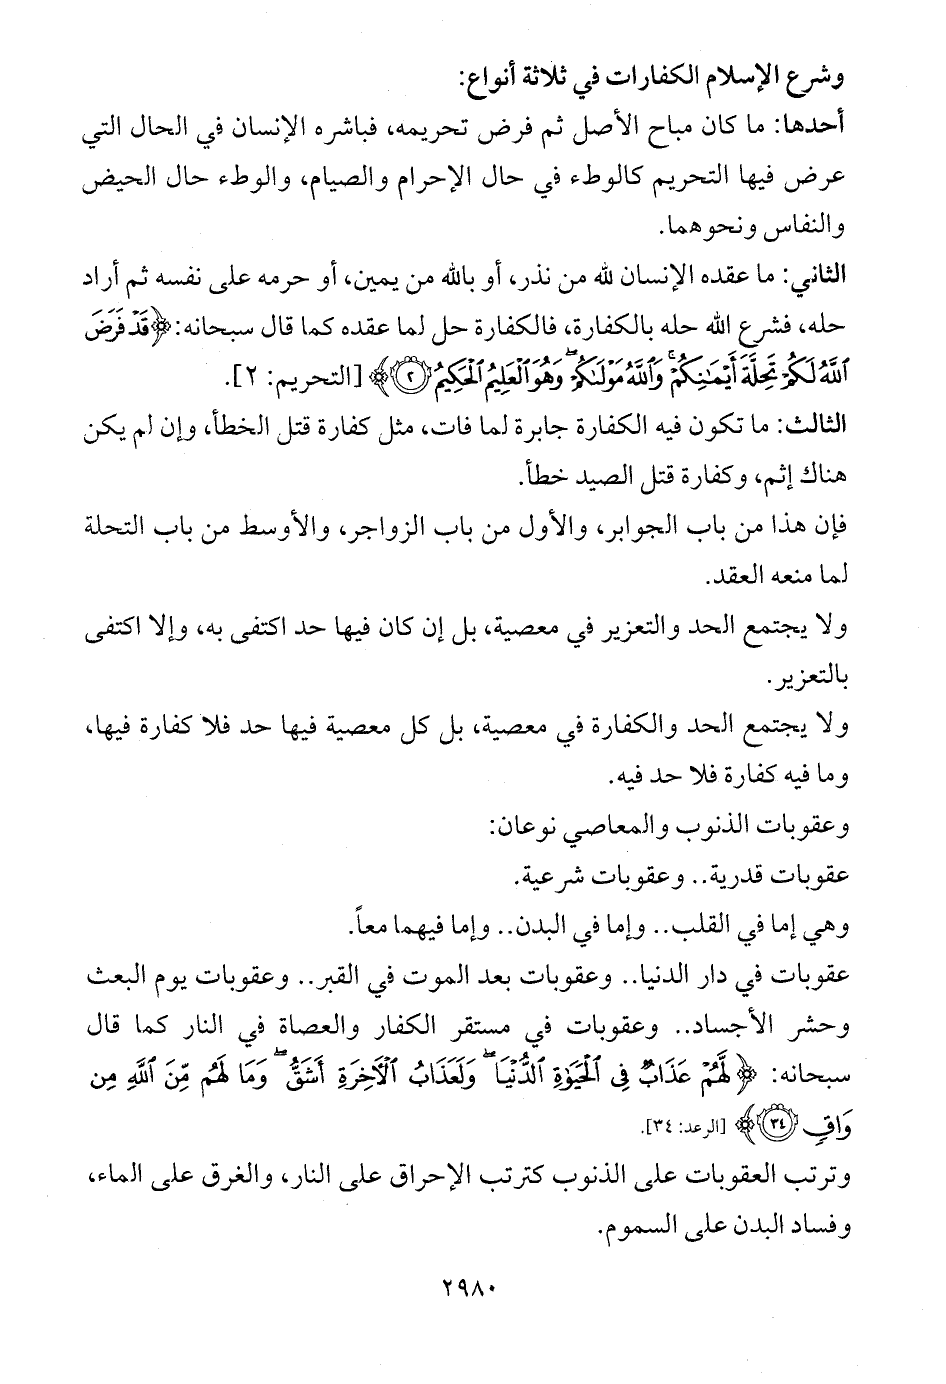 وشرع الإسلام الكفارات في ثلاثة أنواع:
أحدها: ما كان مباح الأصل ثم فرض تحريمه، فباشره الإنسان في الحال التي
عرض فيها التحريم كالوطء في حال الإحرام والصيام، والوطء حال الحيض
والنفاس ونحوهما.
الثاني: ما عقده الإنسان لله من نذر، أو بالله من يمين، أو حرمه على نفسه ثم أراد
حله، فشرع الله حله بالكفارة، فالكفارة حل لما عقده كما قال سبحانه: ﴿قَدْ فَرَضَ
ٱللَّهُ لَكُمْ تَحِلَّةَ أَيْمَـٰنِكُمْ ۚ وَٱللَّهُ مَوْلَىٰكُمْ ۖ وَهُوَ ٱلْعَلِيمُ ٱلْحَكِيمُ ٢﴾ [التحريم: ٢].
الثالث: ما تكون فيه الكفارة جابرة لما فات، مثل كفارة قتل الخطأ، وإن لم يكن
هناك إثم، وكفارة قتل الصيد خطأ.
فإن هذا من باب الجوابر، والأول من باب الزواجر، والأوسط من باب التحلة
لما منعه العقد.
ولا يجتمع الحد والتعزير في معصية، بل إن كان فيها حد اكتفى به، وإلا اكتفى
بالتعزير.
ولا يجتمع الحد والكفارة في معصية، بل كل معصية فيها حد فلا كفارة فيها،
وما فيه كفارة فلا حد فيه.
وعقوبات الذنوب والمعاصي نوعان:
عقوبات قدرية.. وعقوبات شرعية.
وهي إما في القلب.. وإما في البدن.. وإما فيهما معاً.
عقوبات في دار الدنيا.. وعقوبات بعد الموت في القبر.. وعقوبات يوم البعث
وحشر الأجساد.. وعقوبات في مستقر الكفار والعصاة في النار كما قال
سبحانه: ﴿لَّهُمْ عَذَابٌ فِى ٱلْحَيَوٰةِ ٱلدُّنْيَا ۖ وَلَعَذَابُ ٱلْـَٔاخِرَةِ أَشَقُّ ۖ وَمَا لَهُم مِّنَ ٱللَّهِ مِن
وَاقٍ ٣٤﴾ [الرعد: ٣٤].
وترتب العقوبات على الذنوب كترتب الإحراق على النار، والغرق على الماء،
وفساد البدن على السموم.
٢٩٨٠